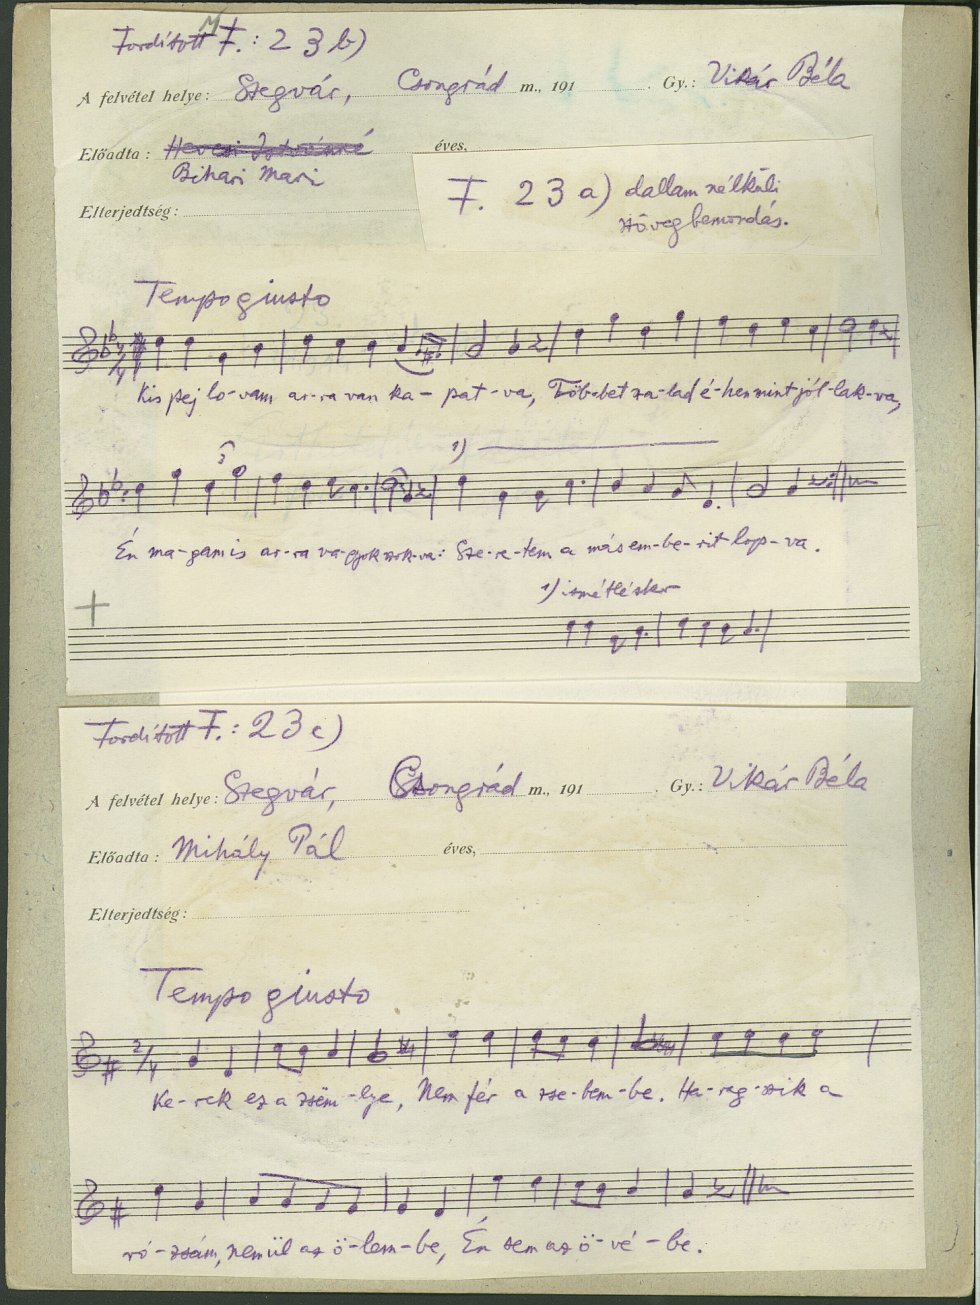 Fordított F.: 23 b)
A felvétel helye: Szegvár, Csongrád m., 191 . Gy.: Vikár Béla
Előadta: Hevesi Istvánné éves,
Bihari Mari
Elterjedtség:
F. 23 a) dallam nélküli
szövegbemondás.
Tempo giusto
Kis pej lo-vam ar-ra van ka-pat-va, Töb-bet sza-lad é-hen mint jól-lak-va,
3
1)
Én ma-gam is ar-ra va-gyok szok-va: Sze-re-tem a más em-be-rit lop-va.
1) ismétléskor
Fordított F.: 23 c)
A felvétel helye: Szegvár, Csongrád m., 191 . Gy.: Vikár Béla
Előadta: Mihály Pál éves,
Elterjedtség:
Tempo giusto
2/4
Ke-rek ez a zsëm-lye, Nem fér a zse-bem-be. Ha-rag-szik a
ró-zsám, nem ül az ö-lem-be, Én sem az ö-vé-be.